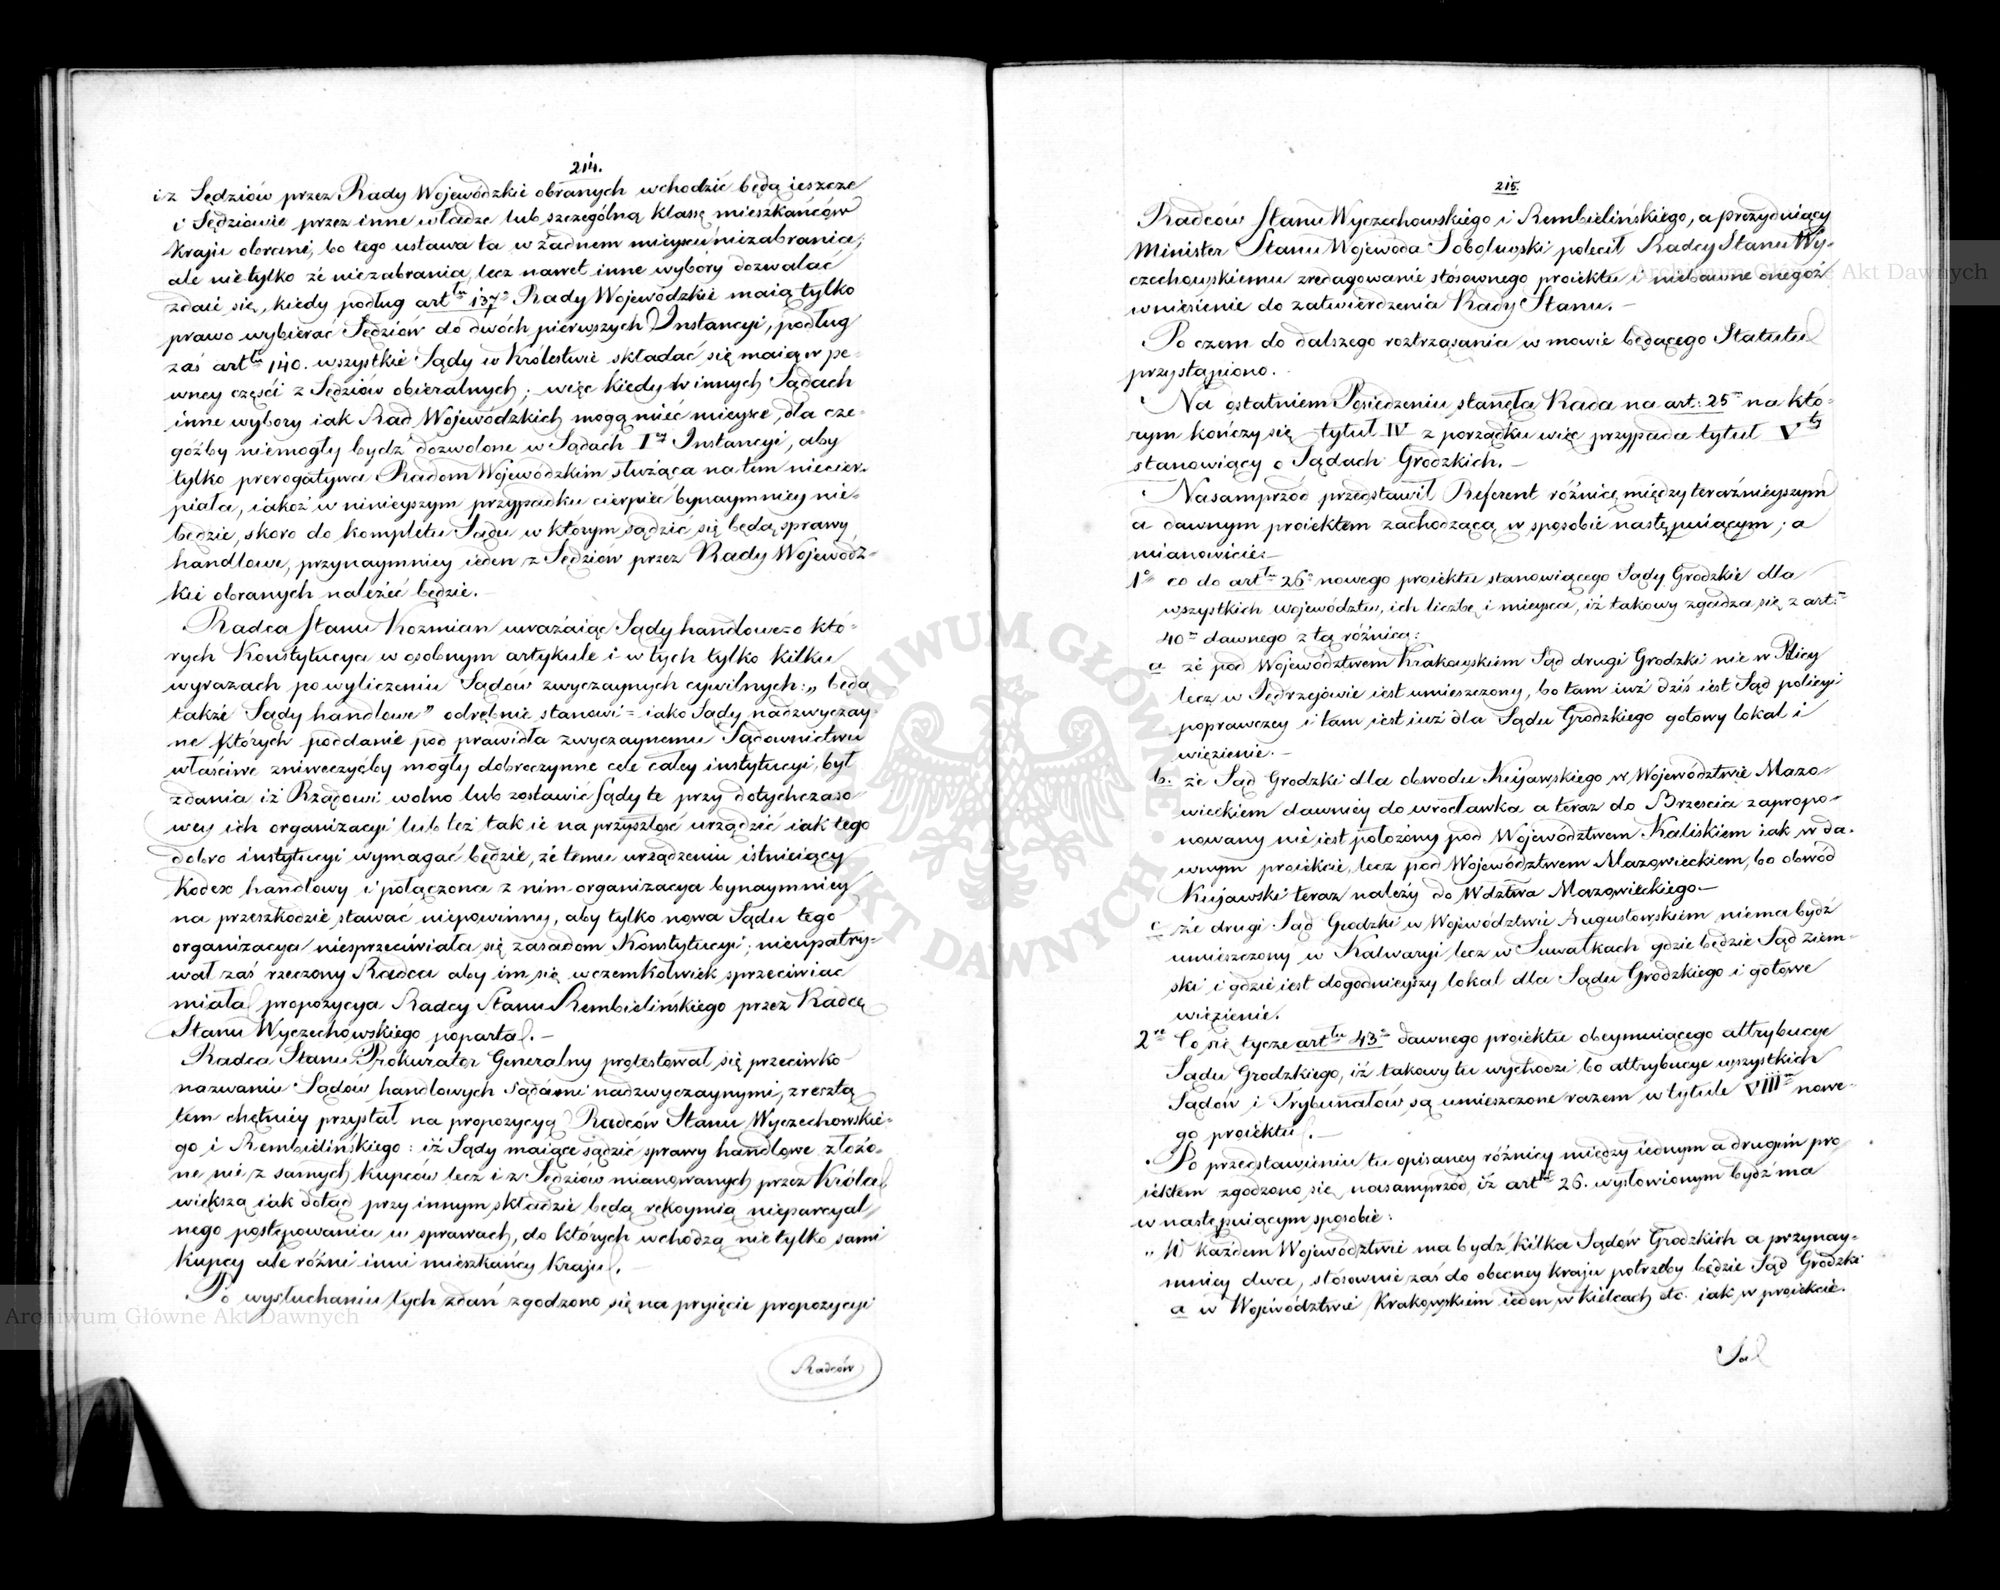 214.
i z Sędziów przez Rady Wojewódzkie obranych wchodzić będą ieszcze
i Sędziowie przez inne władze lub szczególną klassę mieszkańców
kraju obrani, bo tego ustawa ta w żadnem mieyscu niezabrania;
ale nietylko że niezabrania, lecz nawet inne wybory dozwalać
zdaie się, kiedy podług art^tu 137° Rady Wojewódzkie maią tylko
prawo wybierać Sędziów do dwóch pierwszych Instancyi, podług
zaś art^tu 140. wszystkie Sądy w Królestwie składać się maią w pe-
wney części z Sędziów obieralnych; więc kiedy w innych Sądach
inne wybory iak Rad Wojewódzkich mogą mieć mieysce, dla cze-
góżby niemogły bydź dozwolone w Sądach I^ey Instancyi, aby
tylko prerogatywa Radom Wojewódzkim służąca na tem niecier-
piała, iakoż w ninieyszym przypadku cierpieć bynaymniey nie-
będzie, skoro do kompletu Sądu w którym sądzić się będą sprawy
handlowe, przynaymniey ieden z Sędziów przez Rady Wojewódz-
kie obranych należeć będzie. —
Radca Stanu Kozmian uważaiąc Sądy handlowe o któ-
rych Konstytucya w osobnym artykule i w tych tylko kilku
wyrazach po wyliczeniu Sądów zwyczaynych cywilnych: „będą
także Sądy handlowe” odrębnie stanowi = iako Sądy nadzwyczay-
ne których poddanie pod prawidła zwyczaynemu Sądownictwu
właściwe zniweczyćby mogły dobroczynne cele całey instytucyi, był
zdania iż Rządowi wolno lub zostawić Sądy te przy dotychczaso
wey ich organizacyi lub też tak ie na przyszłość urządzić iak tego
dobro instytucyi wymagać będzie, że temu urządzeniu istnieiący
Kodex handlowy i połączona z nim organizacya bynaymniey
na przeszkodzie stawać niepowinny, aby tylko nowa Sądu tego
organizacya niesprzeciwiała się zasadom Konstytucyi; nieupatry-
wał zaś rzeczony Radca aby im się w czemkolwiek sprzeciwiać
miała propozycya Radcy Stanu Rembielińskiego przez Radcę
Stanu Wyczechowskiego poparta. —
Radca Stanu Prokurator Generalny protestował się przeciwko
nazwaniu Sądów handlowych Sądami nadzwyczaynymi, zresztą
tem chętniey przystał na propozycyą Radców Stanu Wyczechowskie-
go i Rembielińskiego: iż Sądy maiące sądzić sprawy handlowe złożo-
ne nie z samych kupców lecz i z Sędziów mianowanych przez Króla
większą iak dotąd przy innym składzie będą rękoymią nieparcyal-
nego postępowania w sprawach, do których wchodzą nie tylko sami
kupcy ale różni inni mieszkańcy kraju. —
Po wysłuchaniu tych zdań zgodzono się na przyięcie propozycyi
Radców
215.
Radców Stanu Wyczechowskiego i Rembielińskiego, a prezyduiący
Minister Stanu Wojewoda Sobolewski polecił Radcy Stanu Wy-
czechowskiemu zredagowanie stosownego proiektu i niebawne onegoż
wniesienie do zatwierdzenia Rady Stanu. —
Po czem do dalszego roztrząsania w mowie będącego Statutu
przystąpiono.
Na ostatniem Posiedzeniu stanęła Rada na art: 25^m na któ-
rym kończy się tytuł IV z porządku więc przypada tytuł V^ty
stanowiący o Sądach Grodzkich. —
Nasamprzód przedstawił Referent różnicę między teraźnieyszym
a dawnym proiektem zachodzącą w sposobie następuiącym; a
mianowicie: —
1° co do art^tu 26° nowego proiektu stanowiącego Sądy Grodzkie dla
wszystkich województw, ich liczbę i mieysca, iż takowy zgadza się z art:
40^m dawnego z tą różnicą:
a że pod Województwem Krakowskiem Sąd drugi Grodzki nie w Pilicy
lecz w Jędrzejowie iest umieszczony, bo tam iuż dziś iest Sąd policyi
poprawczey i tam iest iuż dla Sądu Grodzkiego gotowy lokal i
więzienie. —
b. że Sąd Grodzki dla obwodu Kujawskiego w Województwie Mazo-
wieckiem dawniey do Wrocławka a teraz do Brześcia zapropo-
nowany nie iest położony pod Województwem Kaliskiem iak w da-
wnym proiekcie, lecz pod Województwem Mazowieckiem, bo obwód
Kujawski teraz należy do Wdztwa Mazowieckiego —
c że drugi Sąd Grodzki w Województwie Augustowskiem niema bydź
umieszczony w Kalwaryi lecz w Suwałkach gdzie będzie Sąd Ziem-
ski i gdzie iest dogodnieyszy lokal dla Sądu Grodzkiego i gotowe
więzienie.
2^re Co się tycze art^tu 43° dawnego proiektu obeymuiącego attrybucye
Sądu Grodzkiego, iż takowy tu wychodzi bo attrybucye wszystkich
Sądów i Trybunałów są umieszczone razem w tytule VIII^m nowe-
go proiektu. —
Po przedstawieniu tu opisaney różnicy między iednym a drugim pro-
iektem zgodzono się nasamprzód, iż art^uł 26. wysłowionym bydź ma
w następuiącym sposobie:
„W każdem Województwie ma bydź kilka Sądów Grodzkich a przynay-
mniey dwa, stosownie zaś do obecney kraju potrzeby będzie Sąd Grodzki
a w Województwie Krakowskiem ieden w Kielcach etc. iak w proiekcie.
Archiwum Główne Akt Dawnych
Archiwum Główne Akt Dawnych
ARCHIWUM GŁÓWNE AKT DAWNYCH